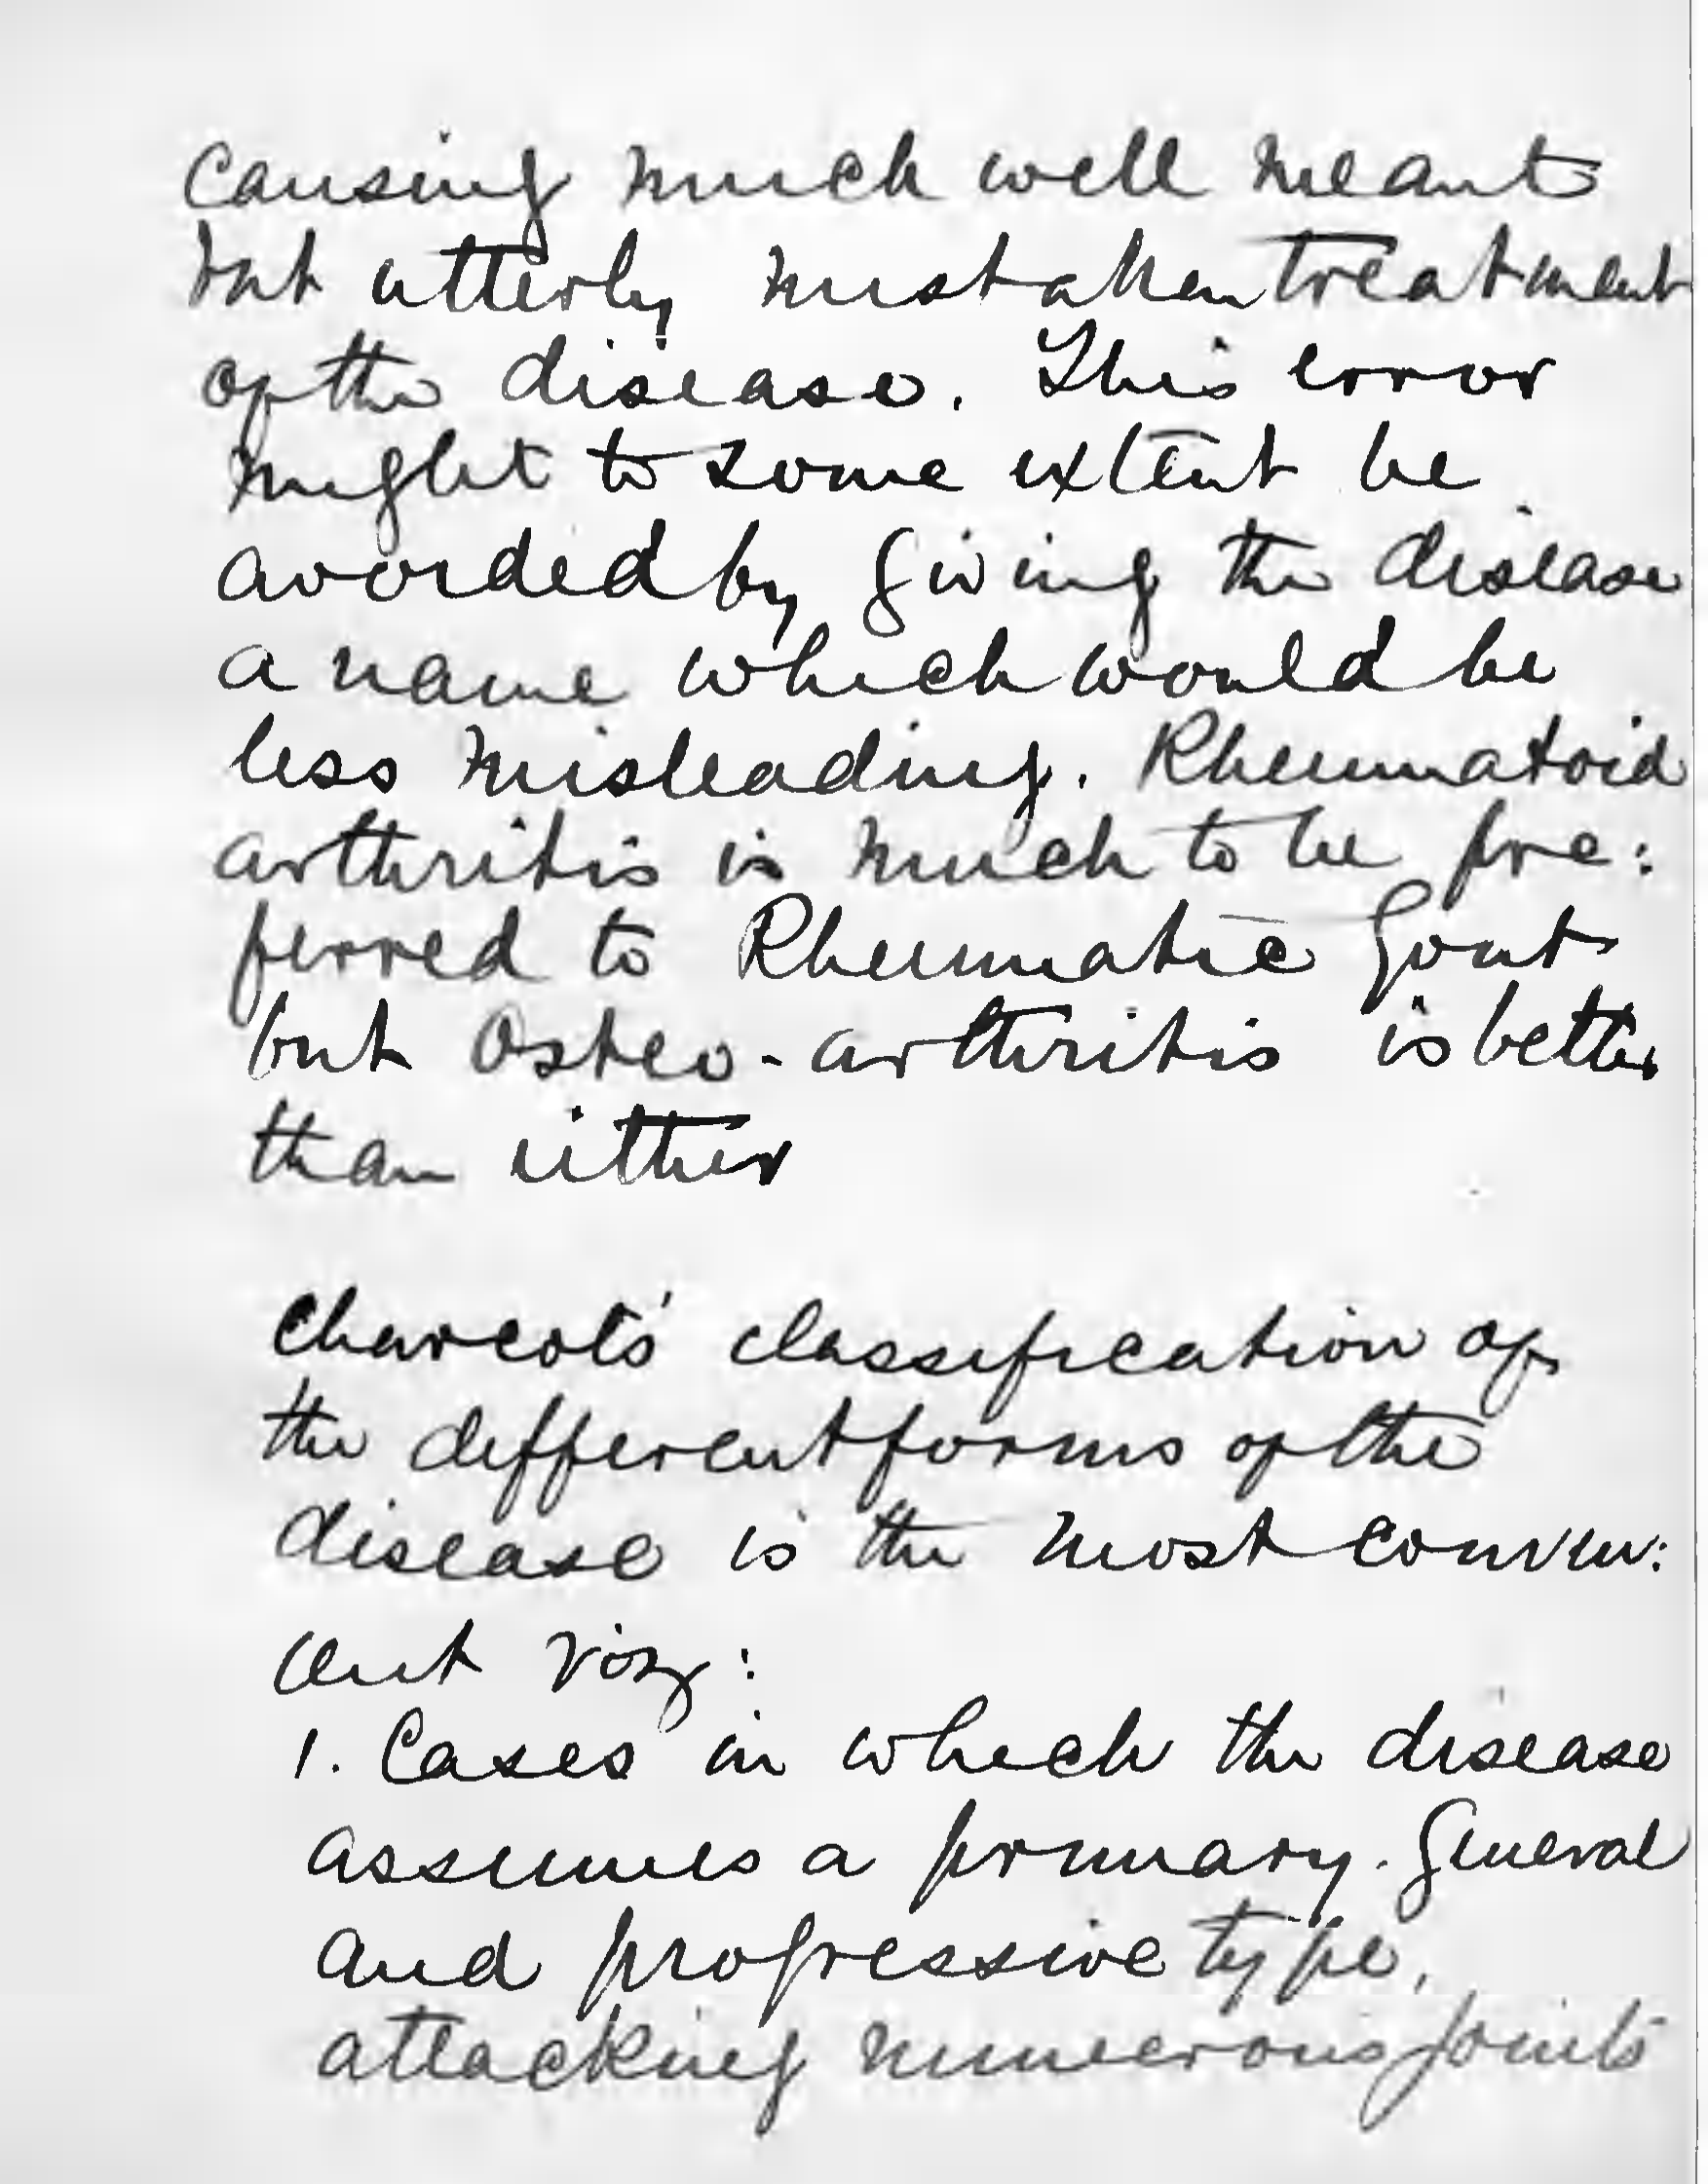 causing much well meant
but utterly mistaken treatment
of the disease. This error
might to some extent be
avoided by giving the disease
a name which would be
less misleading. Rheumatoid
arthritis is much to be pre:
ferred to Rheumatic Gout
but Osteo-arthritis is better
than either
Charcots' classification of
the different forms of the
disease is the most conven:
ient viz:
1. Cases in which the disease
assumes a primary. General
and progressive type,
attacking numerous joints